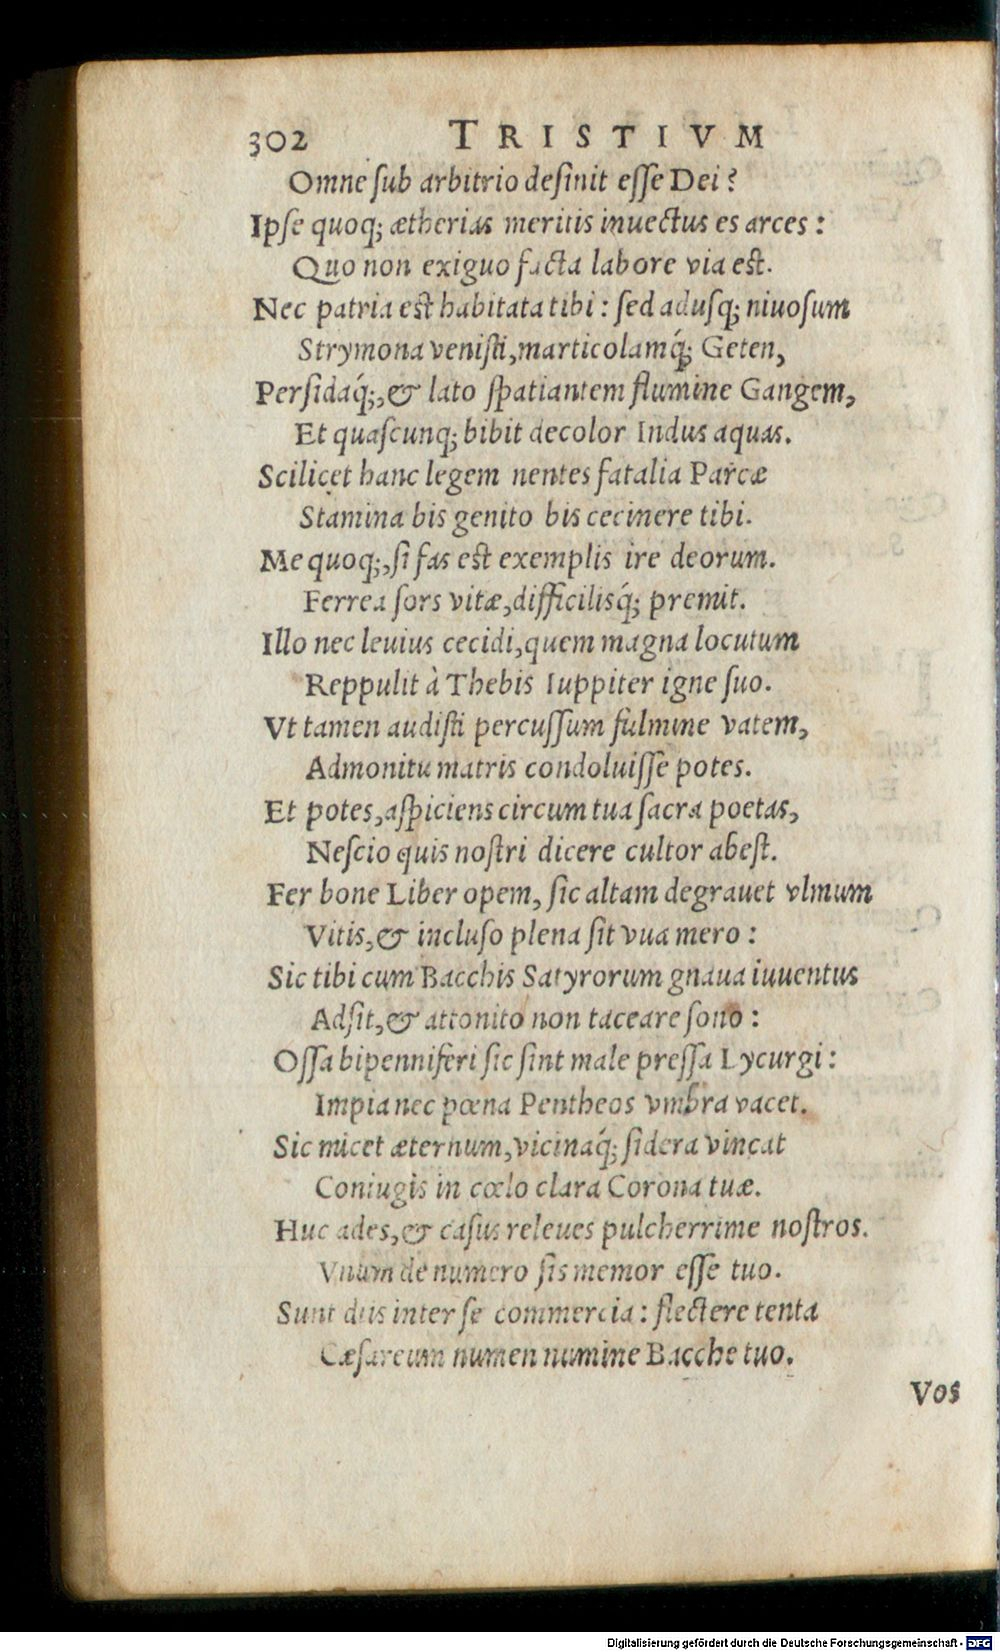 302 TRISTIVM
Omne sub arbitrio desinit esse Dei?
Ipse quoq; ætherias meritis inuectus es arces:
Quo non exiguo facta labore via est.
Nec patria est habitata tibi: sed adusq; niuosum
Strymona venisti, marticolamq́; Geten,
Persidaq́;, & lato spatiantem flumine Gangem,
Et quascunq; bibit decolor Indus aquas.
Scilicet hanc legem nentes fatalia Parcæ
Stamina bis genito bis cecinere tibi.
Me quoq;, si fas est exemplis ire deorum.
Ferrea sors vitæ, difficilisq́; premit.
Illo nec leuius cecidi, quem magna locutum
Reppulit à Thebis Iuppiter igne suo.
Vt tamen audisti percussum fulmine vatem,
Admonitu matris condoluisse potes.
Et potes, aspiciens circum tua sacra poetas,
Nescio quis nostri dicere cultor abest.
Fer bone Liber opem, sic altam degrauet vlmum
Vitis, & incluso plena sit vua mero:
Sic tibi cum Bacchis Satyrorum gnaua iuuentus
Adsit, & attonito non taceare sono:
Ossa bipenniferi sic sint male pressa Lycurgi:
Impia nec pœna Pentheos vmbra vacet.
Sic micet æternum, vicinaq́; sidera vincat
Coniugis in cœlo clara Corona tuæ.
Huc ades, & casus releues pulcherrime nostros.
Vnum de numero sis memor esse tuo.
Sunt diis inter se commercia: flectere tenta
Cæsareum numen numine Bacche tuo.
Vos
Digitalisierung gefördert durch die Deutsche Forschungsgemeinschaft - DFG